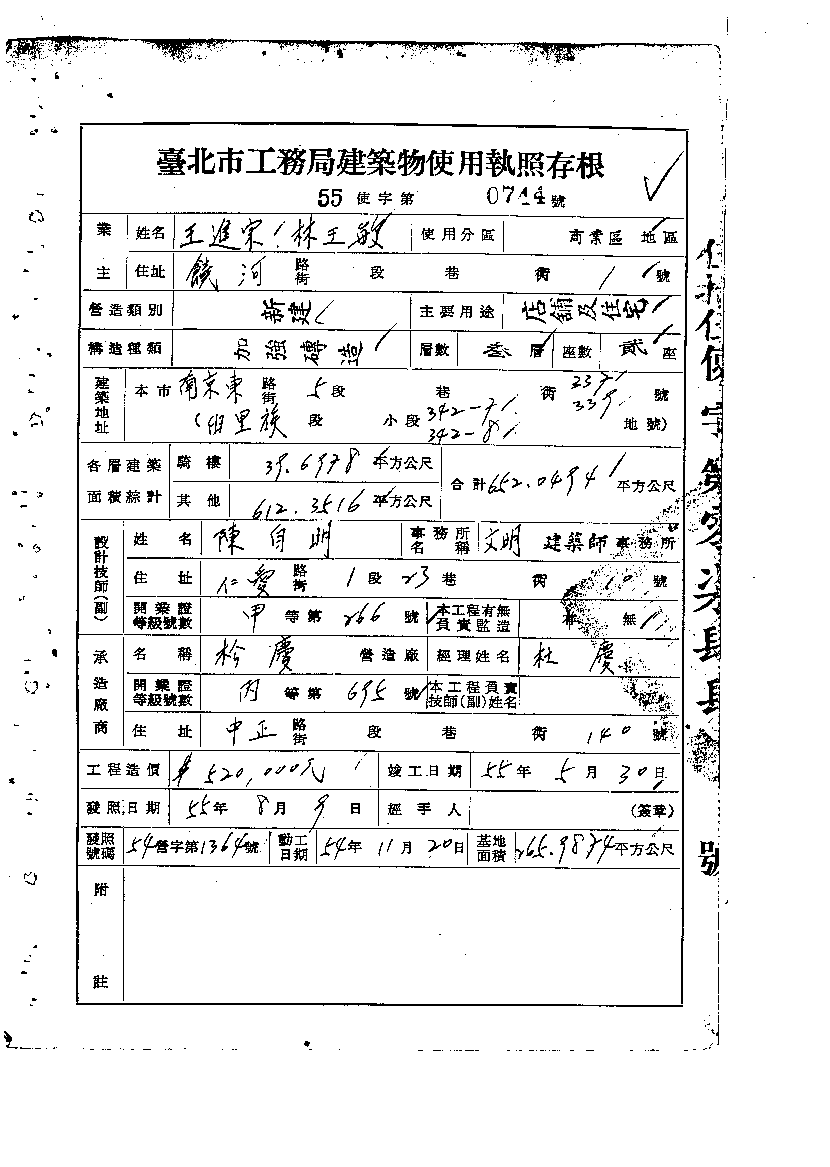 臺北市工務局建築物使用執照存根
55 使字第 0744 號
業主 姓名 王進宋 林王敏 使用分區 商業區 地區
住址 饒河 路街 段 巷 衖 1 號
營造類別 新建 主要用途 店舖及住宅
構造種類 加強磚造 層數 叁 層 座數 貳 座
建築地址 本市 南京東 路街 5 段 巷 衖 337 339 號
(旧里族 段 小段 342-7 342-8 地號)
各層建築面積綜計 騎樓 39.6978 平方公尺 合計 652.0494 平方公尺
其他 612.3516 平方公尺
設計技師(副) 姓名 陳自明 事務所名稱 文明 建築師事務所
住址 仁愛 路街 1 段 23 巷 衖 10 號
開業證等級號數 甲 等第 266 號 本工程有無負責監造 有 無
承造廠商 名稱 松慶 營造廠 經理姓名 杜慶
開業證等級號數 丙 等第 695 號 本工程負責技師(副)姓名
住址 中正 路街 段 巷 衖 140 號
工程造價 $520,000元 竣工日期 55年 5月 30日
發照日期 55年 8月 9日 經手人 (簽章)
發照號碼 54營字第1364號 動工日期 54年 11月 20日 基地面積 265.9874平方公尺
附註
使字第零柒肆肆號